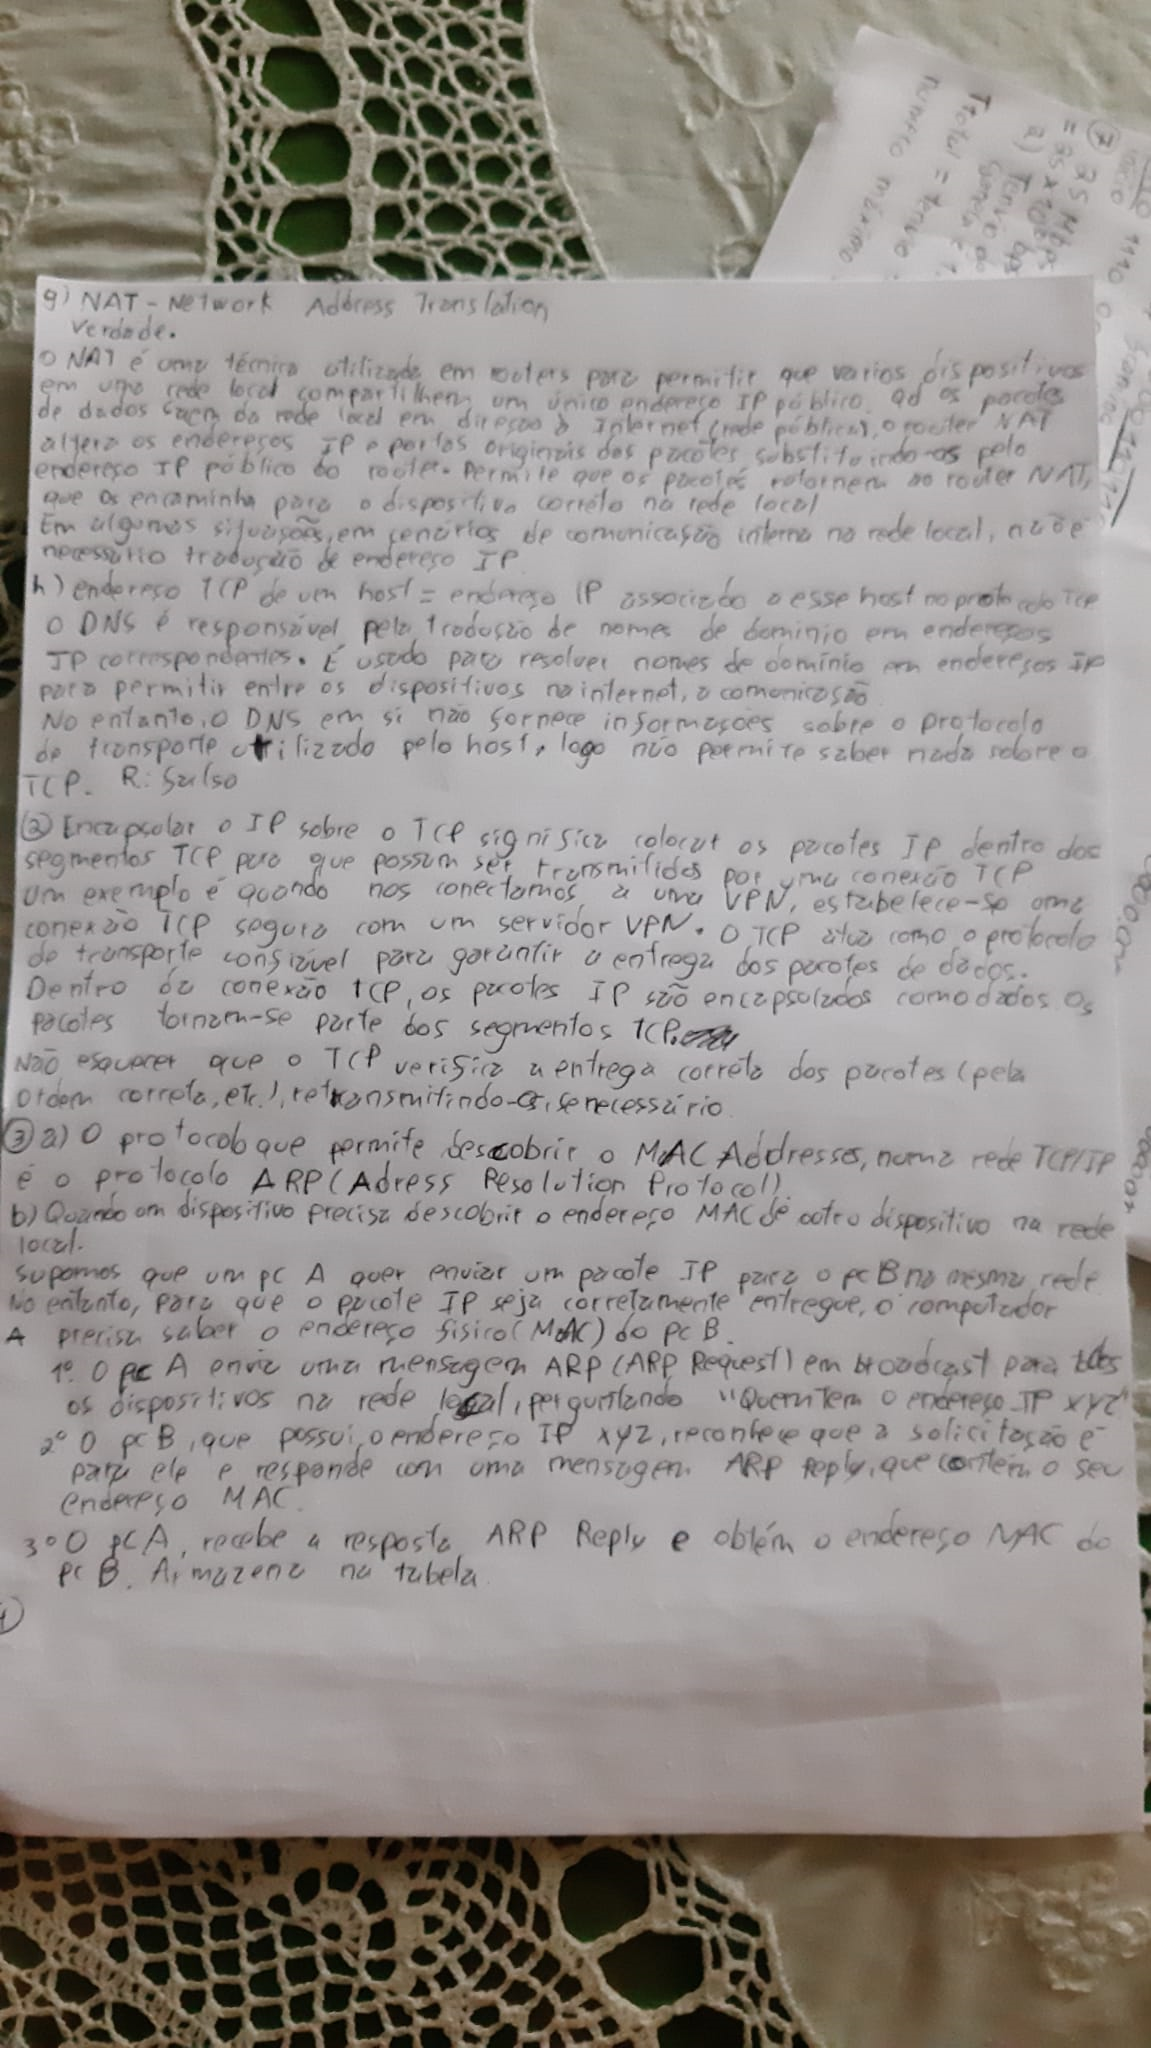 g) NAT - Network Address Translation
Verdade.
O NAT é uma técnica utilizada em routers para permitir que varios dispositivos
em uma rede local compartilhem um único endereço IP público. Qd os pacotes
de dados saem da rede local em direção à Internet (rede pública), o router NAT
altera os endereços IP e portas originais dos pacotes substituindo-os pelo
endereço IP público do router. Permite que os pacotes retornem ao router NAT,
que os encaminha para o dispositivo correto na rede local
Em algumas situações, em cenários de comunicação interna na rede local, não é
necessário tradução de endereço IP.
h) endereço TCP de um host = endereço IP associado a esse host no protocolo TCP
O DNS é responsável pela tradução de nomes de dominio em endereços
IP correspondentes. É usado para resolver nomes de domínio em endereços IP
para permitir entre os dispositivos na internet, a comunicação
No entanto, o DNS em si não fornece informações sobre o protocolo
de transporte utilizado pelo host, logo não permite saber nada sobre o
TCP. R: falso
(2) Encapsular o IP sobre o TCP significa colocar os pacotes IP dentro dos
segmentos TCP para que possam ser transmitidos por uma conexão TCP
Um exemplo é quando nos conectamos a uma VPN, estabelece-se uma
conexão TCP segura com um servidor VPN. O TCP atua como o protocolo
de transporte confiável para garantir a entrega dos pacotes de dados.
Dentro da conexão TCP, os pacotes IP são encapsulados como dados. Os
pacotes tornam-se parte dos segmentos TCP.
Não esquecer que o TCP verifica a entrega correta dos pacotes (pela
ordem correta, etc.), retransmitindo-os, se necessário.
(3) a) O protocolo que permite descobrir o MAC Addresses, numa rede TCP/IP
é o protocolo ARP (Adress Resolution Protocol)
b) Quando um dispositivo precisa descobrir o endereço MAC de outro dispositivo na rede
local.
Supomos que um pc A quer enviar um pacote IP para o pc B na mesma rede
No entanto, para que o pacote IP seja corretamente entregue, o computador
A precisa saber o endereço fisico (MAC) do pc B.
1º. O pc A envia uma mensagem ARP (ARP Request) em broadcast para todos
os dispositivos na rede local, perguntando "Quem tem o endereço IP xyz"
2º O pc B, que possui o endereço IP xyz, reconhece que a solicitação é
para ele e responde com uma mensagem ARP Reply, que contém o seu
endereço MAC.
3º O pc A, recebe a resposta ARP Reply e obtém o endereço MAC do
pc B. Armazena na tabela
(7
= 25 Mbps
a) Tempo
Ttotal = tempo
numero maximo